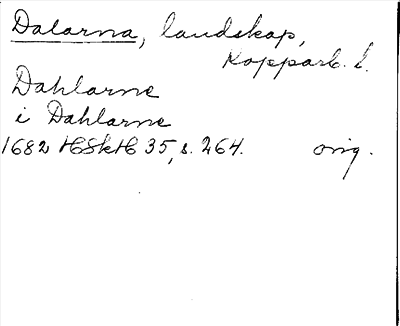 Dalarna, landskap,
Kopparb. l.
Dahlarne
i Dahlarne
1682 HSkH 35, s. 264. orig.